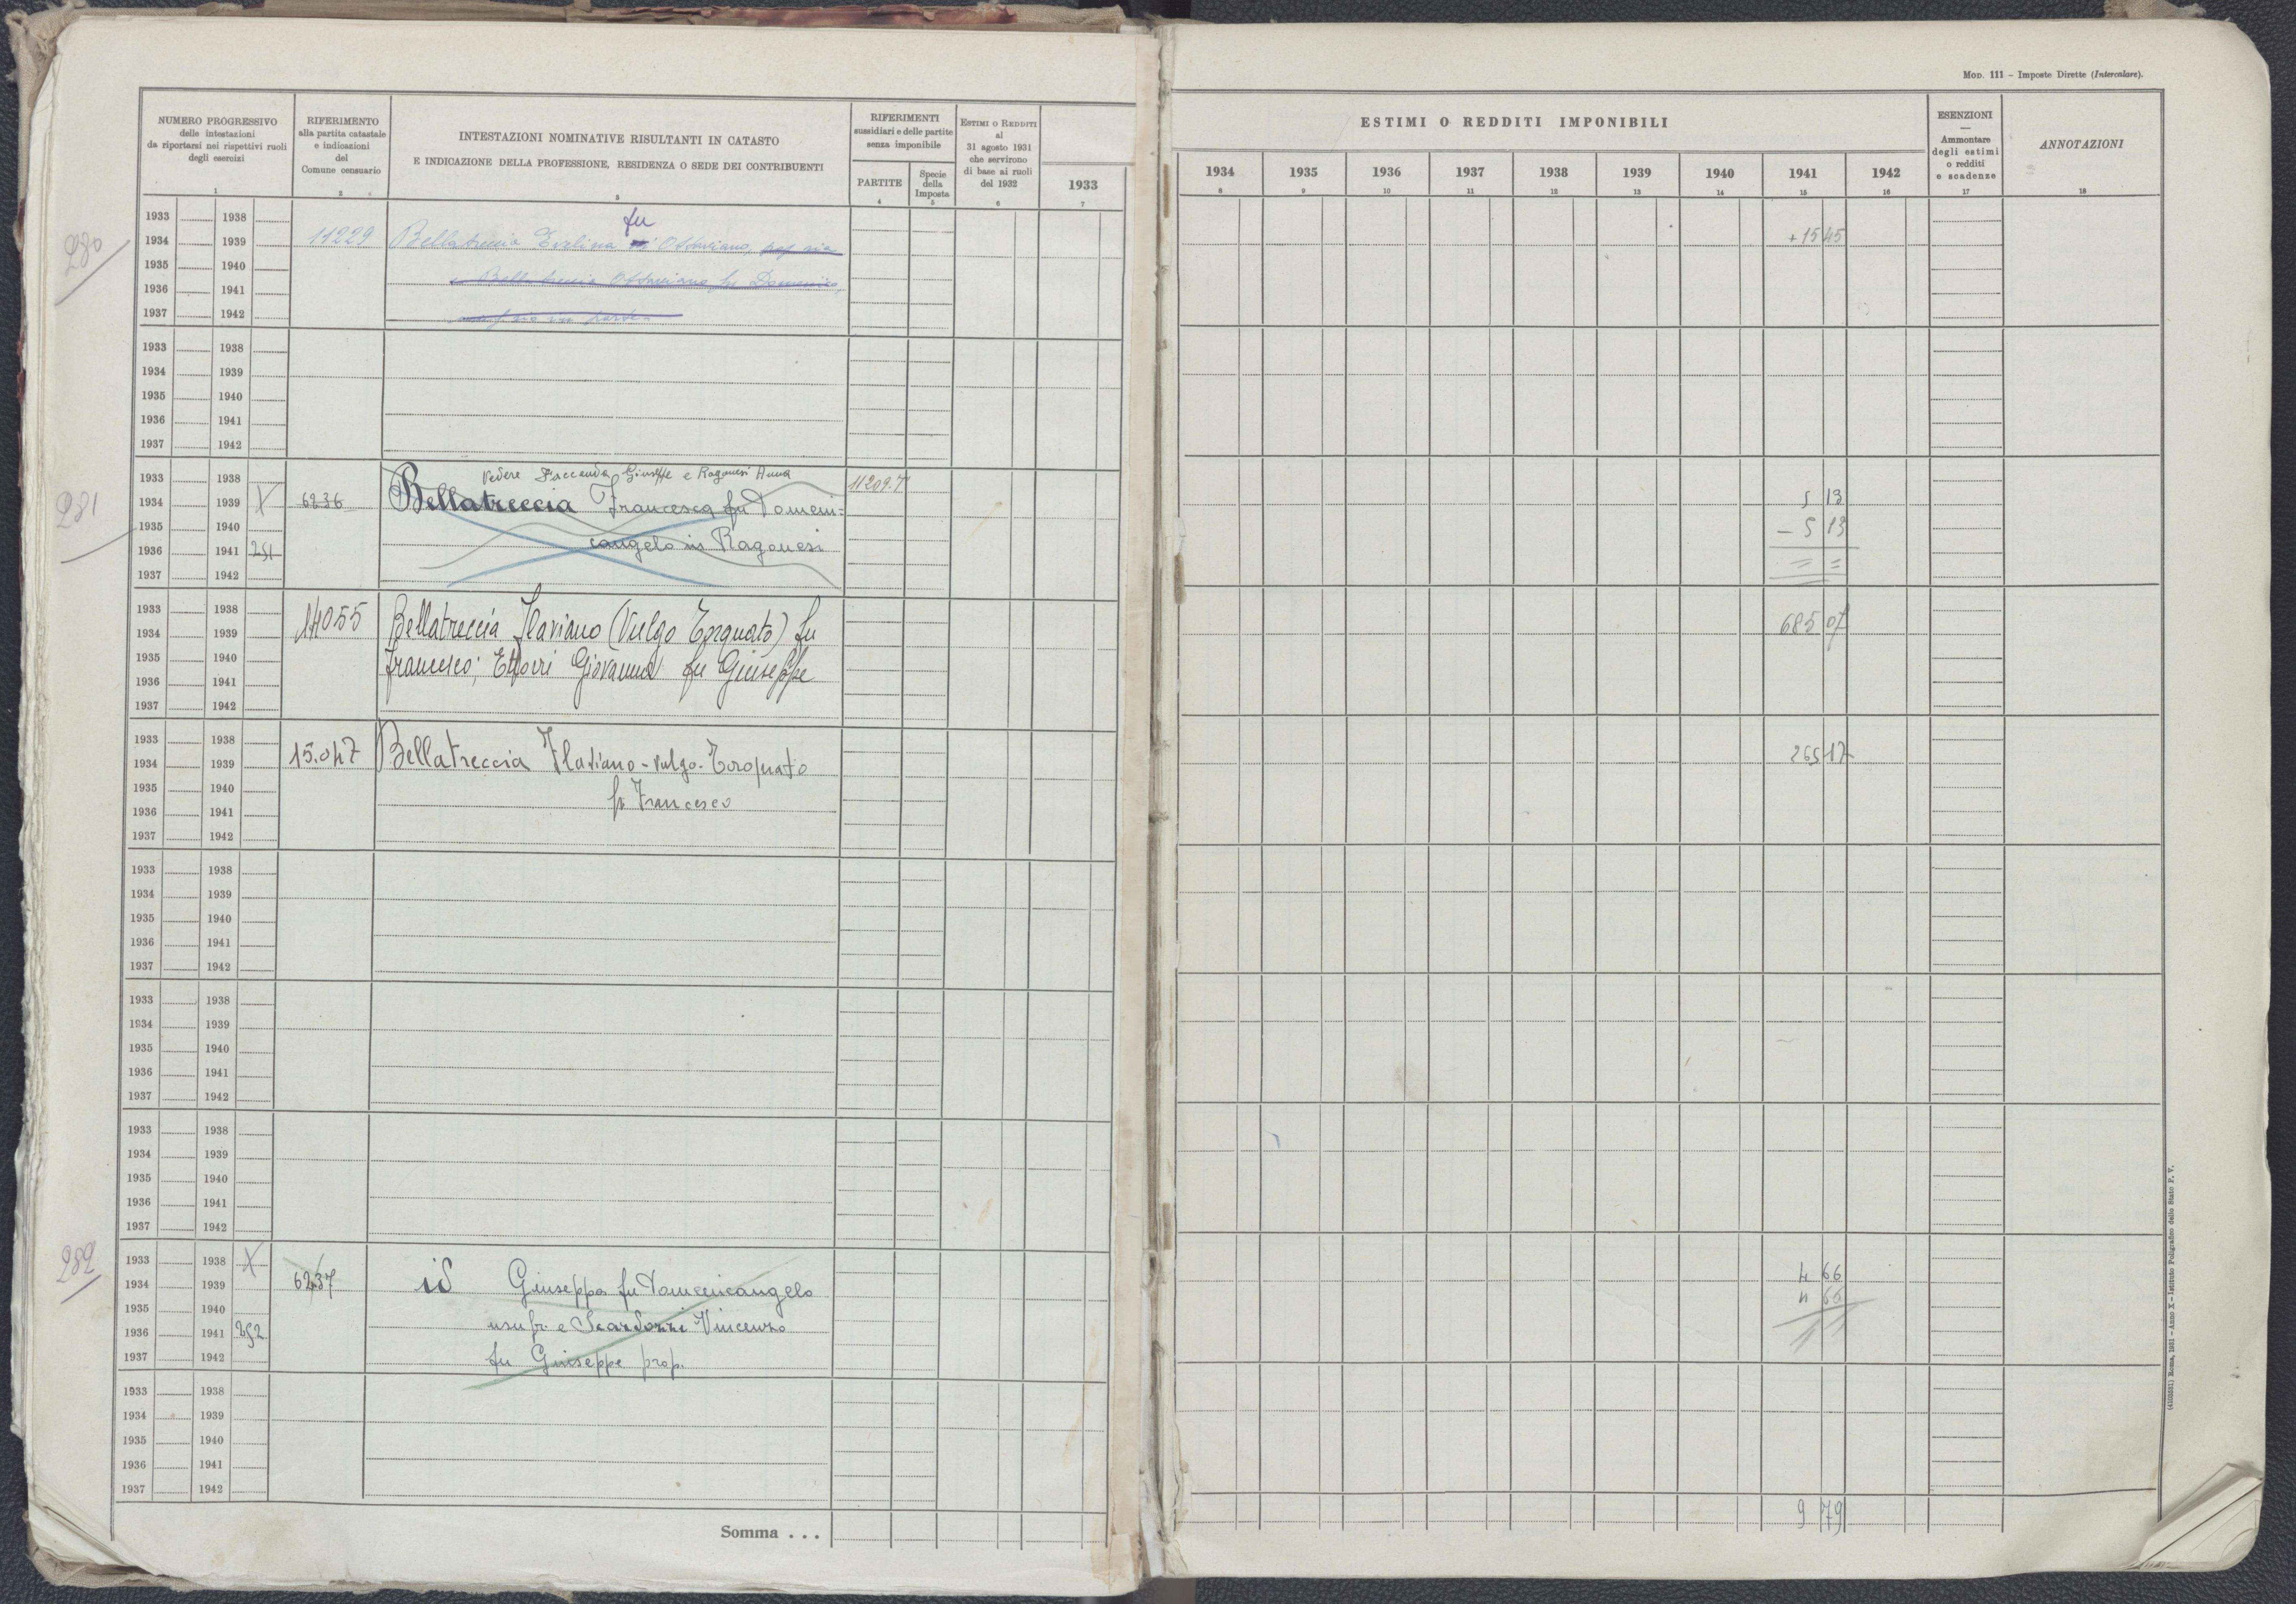 MOD. 111 – Imposte Dirette (Intercalare).
NUMERO PROGRESSIVO
delle intestazioni
da riportarsi nei rispettivi ruoli
degli esercizi
1
RIFERIMENTO
alla partita catastale
e indicazioni
del
Comune censuario
2
INTESTAZIONI NOMINATIVE RISULTANTI IN CATASTO
E INDICAZIONE DELLA PROFESSIONE, RESIDENZA O SEDE DEI CONTRIBUENTI
3
RIFERIMENTI
sussidiari e delle partite
senza imponibile
PARTITE
4
Specie
della
Imposta
5
ESTIMI O REDDITI
al
31 agosto 1931
che servirono
di base ai ruoli
del 1932
6
1933
7
ESTIMI O REDDITI IMPONIBILI
1934 1935 1936 1937 1938 1939 1940 1941 1942
8 9 10 11 12 13 14 15 16
ESENZIONI
—
Ammontare
degli estimi
o redditi
e scadenze
17
ANNOTAZIONI
18
280
1933 1938 fu
1934 1939 11229 Bellatreccia Evelina Ottaviano, +15 45
1935 1940
1936 1941 Bellatreccia Ottaviano fu Domenico,
1937 1942
1933 1938
1934 1939
1935 1940
1936 1941
1937 1942
281
1933 1938 Vedere Faccenda Giuseppe e Ragonesi Anna 11209.7
1934 1939 X 6236 Bellatreccia Francesca fu Domeni= 5 13
1935 1940 – 5 13
1936 1941 251 cangelo in Ragonesi = =
1937 1942
1933 1938 14055 Bellatreccia Flaviano (Vulgo Torquato) fu 685 07
1934 1939
1935 1940 Francesco; Ettorri Giovanna fu Giuseppe
1936 1941
1937 1942
1933 1938
1934 1939 15.047 Bellatreccia Flaviano - vulgo - Torquato 265 17
1935 1940 fu Francesco
1936 1941
1937 1942
1933 1938
1934 1939
1935 1940
1936 1941
1937 1942
1933 1938
1934 1939
1935 1940
1936 1941
1937 1942
1933 1938
1934 1939
1935 1940
1936 1941
1937 1942
282
1933 1938 X 4 66
1934 1939 6237 id Giuseppa fu Domenicangelo 4 66
1935 1940
1936 1941 252 usufr. e Scardozzi Vincenzo
1937 1942 fu Giuseppe prop.
1933 1938
1934 1939
1935 1940
1936 1941
1937 1942
Somma . . . 9 79
(4103031) Roma, 1931 – Anno X – Istituto Poligrafico dello Stato P. V.